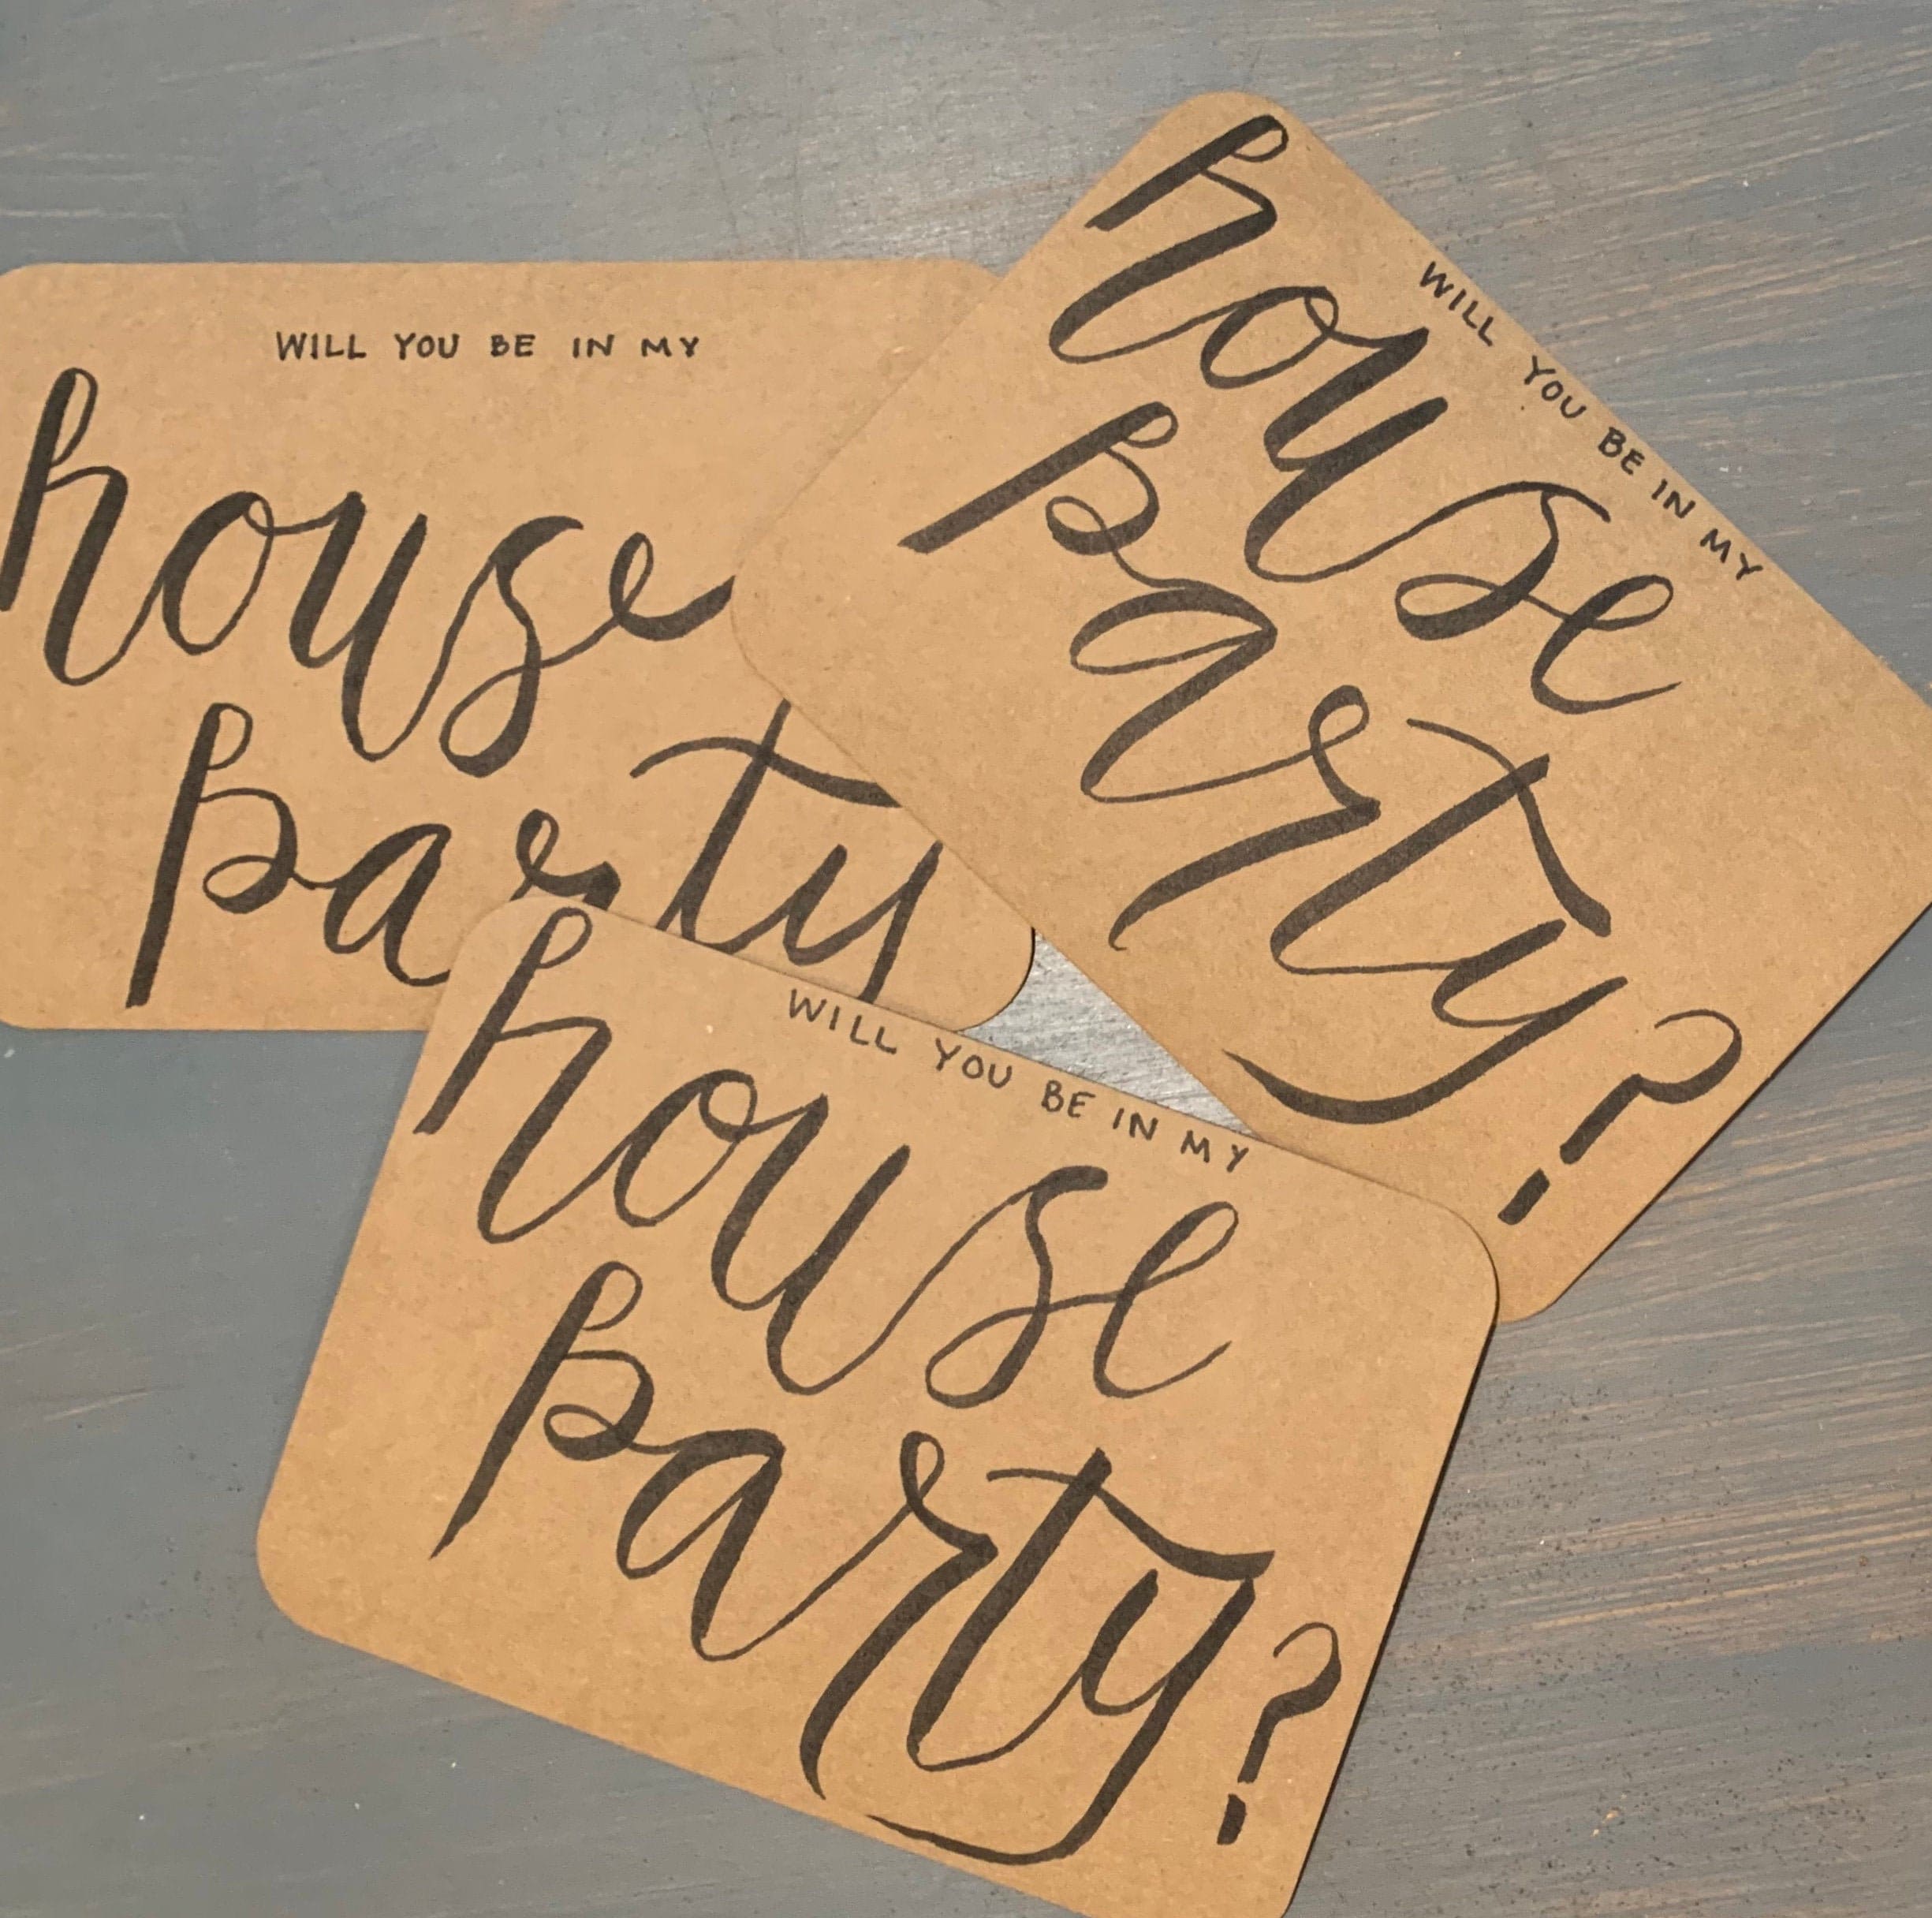 WILL YOU BE IN MY
house
party
WILL YOU BE IN MY
house
party?
WILL YOU BE IN MY
house
party?